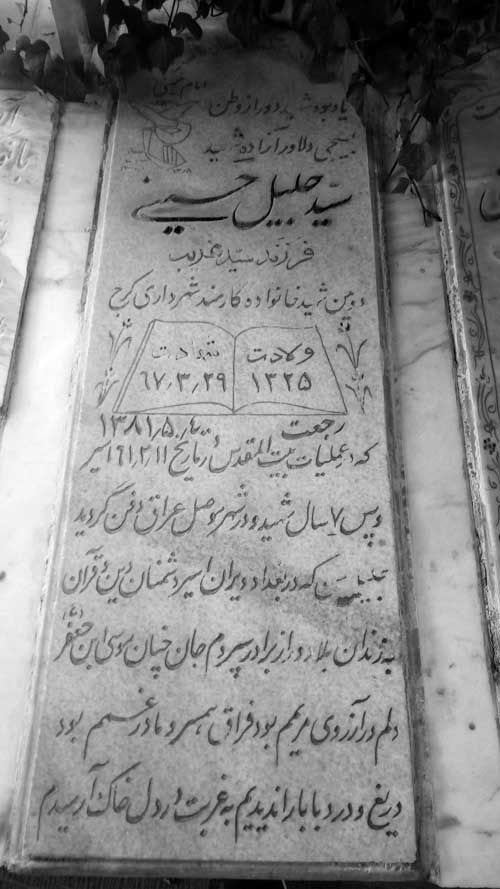 امام حسین
یادبود شهید دور از وطن
بسیجی دلاور آزاده شهید
سید جلیل حسینی
فرزند سید غریب
دومین شهید خانواده کارمند شهرداری کرج
ولادت شهادت
۱۳۲۵ ۶۷٫۳٫۲۹
رجعت ۱۳۸۱٫۵
که در عملیات بیت المقدس در تاریخ ۶۱٫۲٫۱۱ اسیر
و پس ۷ سال شهید و در شهر موصل عراق دفن گردید
که در بغداد ویران اسیر دشمنان دین و قرآن
به زندان بلا دور از برادر سپردم جان چنان موسی ابن جعفر (ع)
دلم در آرزوی مریمم بود فراق همسر و مادر غمم بود
دریغ و درد بابا را ندیدیم به غربت در دل خاک آرمیدم